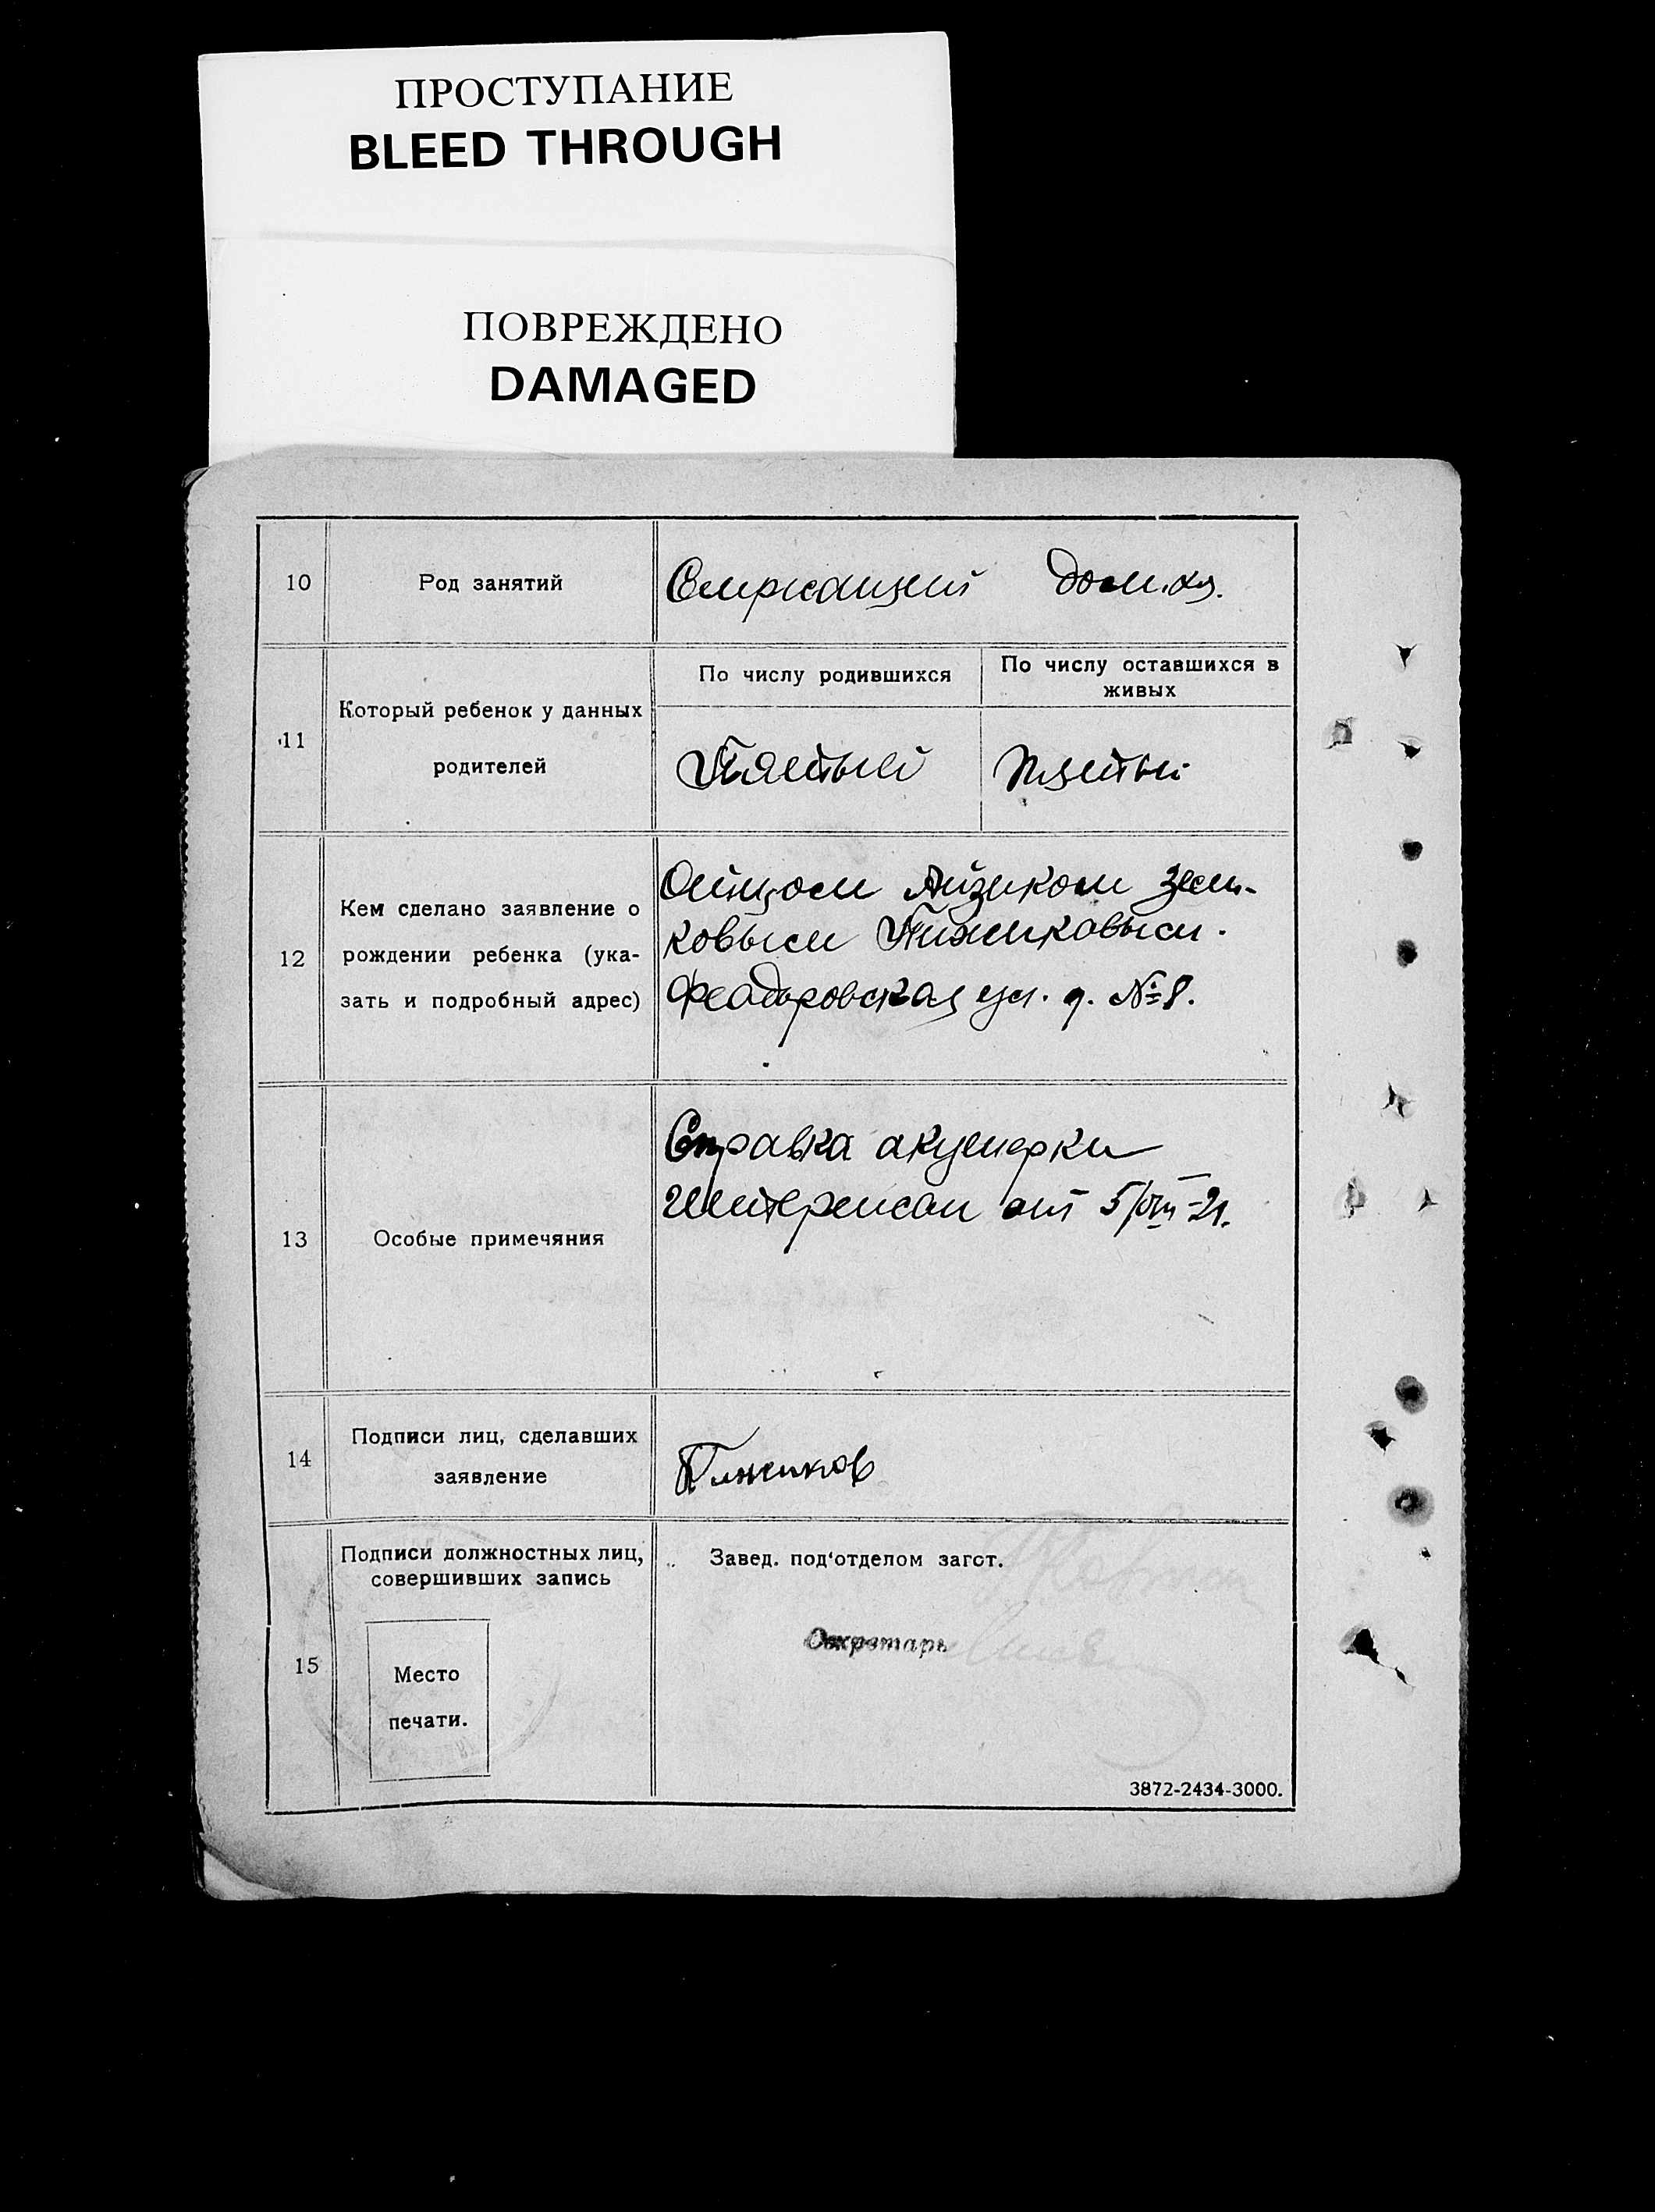 ПРОСТУПАНИЕ
BLEED THROUGH
ПОВРЕЖДЕНО
DAMAGED
10
Род занятий
Служащий дом.хоз.
11
Который ребенок у данных
родителей
По числу родившихся
По числу оставшихся в
живых
Пятый
пятый
12
Кем сделано заявление о
рождении ребенка (ука-
зать и подробный адрес)
Отцом Айзиком
ковым Пижиковым.
Феодоровская ул. д. № 8.
13
Особые примечяния
Справка акушерки
от 5/VIII-21.
14
Подписи лиц, сделавших
заявление
Пижиков
15
Подписи должностных лиц,
совершивших запись
Место
печати.
Завед. под'отделом загст.
Секретарь
3872-2434-3000.